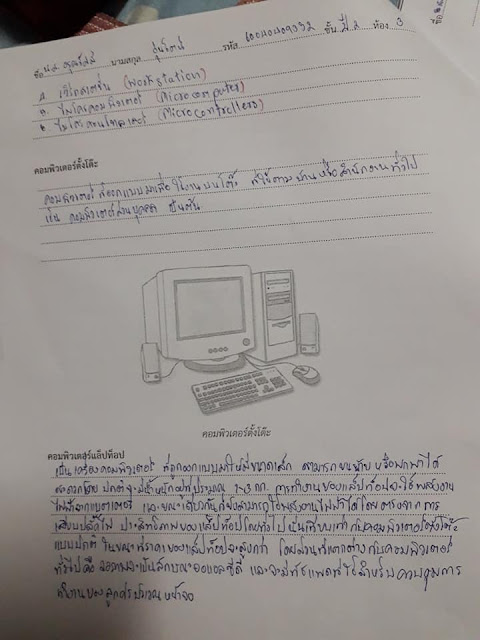 ชื่อ น.ส นามสกุล รหัส ชั้น ปี 2 ห้อง 3
เวิร์กสเตชั่น (Workstation)
ไมโครคอมพิวเตอร์ (Microcomputer)
ไมโครคอนโทรลเลอร์ (Microcontrollers)
คอมพิวเตอร์ตั้งโต๊ะ
คอมพิวเตอร์ที่ออกแบบมาเพื่อใช้งานบนโต๊ะ ทั่วไป
เช่น คอมพิวเตอร์ส่วนบุคคล เป็นต้น
คอมพิวเตอร์ตั้งโต๊ะ
คอมพิวเตอร์แล็ปท็อป
เป็นเครื่องคอมพิวเตอร์ ที่ถูกออกแบบมาให้มีขนาดเล็ก สามารถขนย้าย หรือพกพาได้
สะดวกโดย ปกติจะมีน้ำหนักอยู่ประมาณ 1-3 กก. การทำงานของแล็ปท็อปจะใช้พลังงาน
ไฟฟ้าจากแบตเตอรี่ และขณะเดียวกันก็ยังสามารถใช้พลังงานไฟฟ้าได้โดยตรงจากการ
เสียบปลั๊กไฟ ประสิทธิภาพของแล็ปท็อปโดยทั่วไปนั้นเทียบเท่ากับคอมพิวเตอร์ตั้งโต๊ะ
แบบปกติ ในขณะที่ราคาของแล็ปท็อปจะสูงกว่า โดยส่วนที่แตกต่างกับคอมพิวเตอร์
ทั่วไปคือ จอภาพจะเป็นลักษณะจอแอลซีดี และจะมีทัชแพดที่ใช้สำหรับควบคุมการ
ทำงานของลูกศรบริเวณหน้าจอ